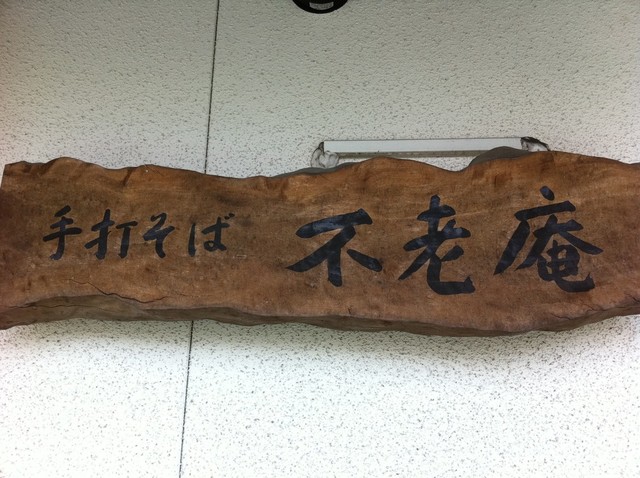 手打そば 不老庵